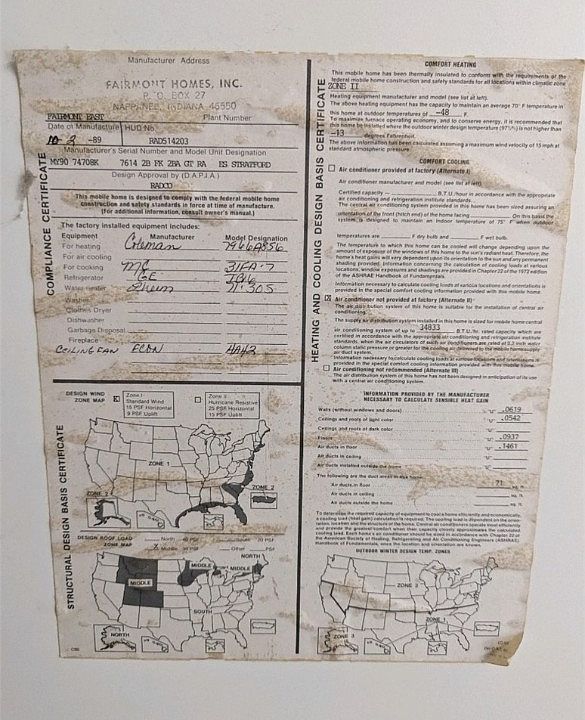 Manufacturer Address
FAIRMONT HOMES, INC.
P. O. BOX 27
NAPPANEE, INDIANA 46550
FAIRMONT EAST Plant Number
Date of Manufacture HUD No.
-89 RAD514203
Manufacturer's Serial Number and Model Unit Designation
MY90 74708K 7614 2B FK 2BA GT RA ES STRATFORD
Design Approval by (D.A.P.I.A.)
RADCO
This mobile home is designed to comply with the federal mobile home
construction and safety standards in force at time of manufacture.
(For additional information, consult owner's manual.)
COMPLIANCE CERTIFICATE
The factory installed equipment includes:
Equipment Manufacturer Model Designation
For heating Coleman
For air cooling
For cooking MC
Refrigerator GE
Water heater Rheem
Washer
Clothes Dryer
Dishwasher
Garbage Disposal
Fireplace
CEILING FAN ECON
STRUCTURAL DESIGN BASIS CERTIFICATE
DESIGN WIND
ZONE MAP
Zone I
Standard Wind
15 PSF Horizontal
9 PSF Uplift
Zone II
Hurricane Resistive
25 PSF Horizontal
15 PSF Uplift
ZONE 1
ZONE 2
ZONE 2
DESIGN ROOF LOAD
ZONE MAP
North 40 PSF
South 20 PSF
Middle 30 PSF
Other PSF
NORTH
MIDDLE
MIDDLE
MIDDLE
SOUTH
NORTH
HEATING AND COOLING DESIGN BASIS CERTIFICATE
COMFORT HEATING
This mobile home has been thermally insulated to conform with the requirements of the
federal mobile home construction and safety standards for all locations within climatic zone
ZONE II
Heating equipment manufacturer and model (see list at left).
The above heating equipment has the capacity to maintain an average 70° F temperature in
this home at outdoor temperatures of -48 F.
To maximize furnace operating economy, and to conserve energy, it is recommended that
this home be installed where the outdoor winter design temperature (97½%) is not higher than
-13 degrees Fahrenheit.
The above information has been calculated assuming a maximum wind velocity of 15 mph at
standard atmospheric pressure.
COMFORT COOLING
Air conditioner provided at factory (Alternate I)
Air conditioner manufacturer and model (see list at left).
Certified capacity B.T.U./hour in accordance with the appropriate
air conditioning and refrigeration institute standards.
The central air conditioning system provided in this home has been sized assuming an
orientation of the front (hitch end) of the home facing On this basis the
system is designed to maintain an indoor temperature of 75° F when outdoor
temperatures are F dry bulb and F wet bulb.
The temperature to which this home can be cooled will change depending upon the
amount of exposure of the windows of this home to the sun's radiant heat. Therefore, the
home's heat gains will vary dependent upon its orientation to the sun and any permanent
shading provided. Information concerning the calculation of cooling loads at various
locations, window exposures and shadings are provided in Chapter 22 of the 1972 edition
of the ASHRAE Handbook of Fundamentals.
Information necessary to calculate cooling loads at various locations and orientations is
provided in the special comfort cooling information provided with this mobile home.
Air conditioner not provided at factory (Alternate II)
The air distribution system of this home is suitable for the installation of central air
conditioning.
The supply air distribution system installed in this home is sized for mobile home central
air conditioning system of up to 34833 B.T.U./hr. rated capacity which are
certified in accordance with the appropriate air conditioning and refrigeration institute
standards, when the air circulators of such air conditioners are rated at 0.3 inch water
Information necessary to calculate cooling loads at various locations and orientations is
provided in the special comfort cooling information provided with this mobile home.
Air conditioning not recommended (Alternate III)
The air distribution system of this home has not been designed in anticipation of its use
with a central air conditioning system.
INFORMATION PROVIDED BY THE MANUFACTURER
NECESSARY TO CALCULATE SENSIBLE HEAT GAIN
Walls (without windows and doors) .0619
Ceilings and roofs of light color .0542
Ceilings and roofs of dark color
Floors .0937
Air ducts in floor .1461
Air ducts in ceiling
Air ducts installed outside the home
The following are the duct areas in this home:
Air ducts in floor 71
Air ducts in ceiling
Air ducts outside the home
OUTDOOR WINTER DESIGN TEMP. ZONES
ZONE 3
ZONE 1
ZONE 3